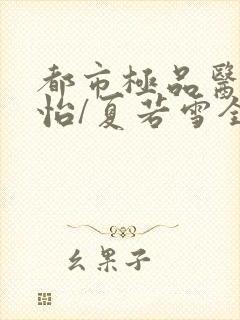 都市極品醫
怡/夏若雪全
幺果子